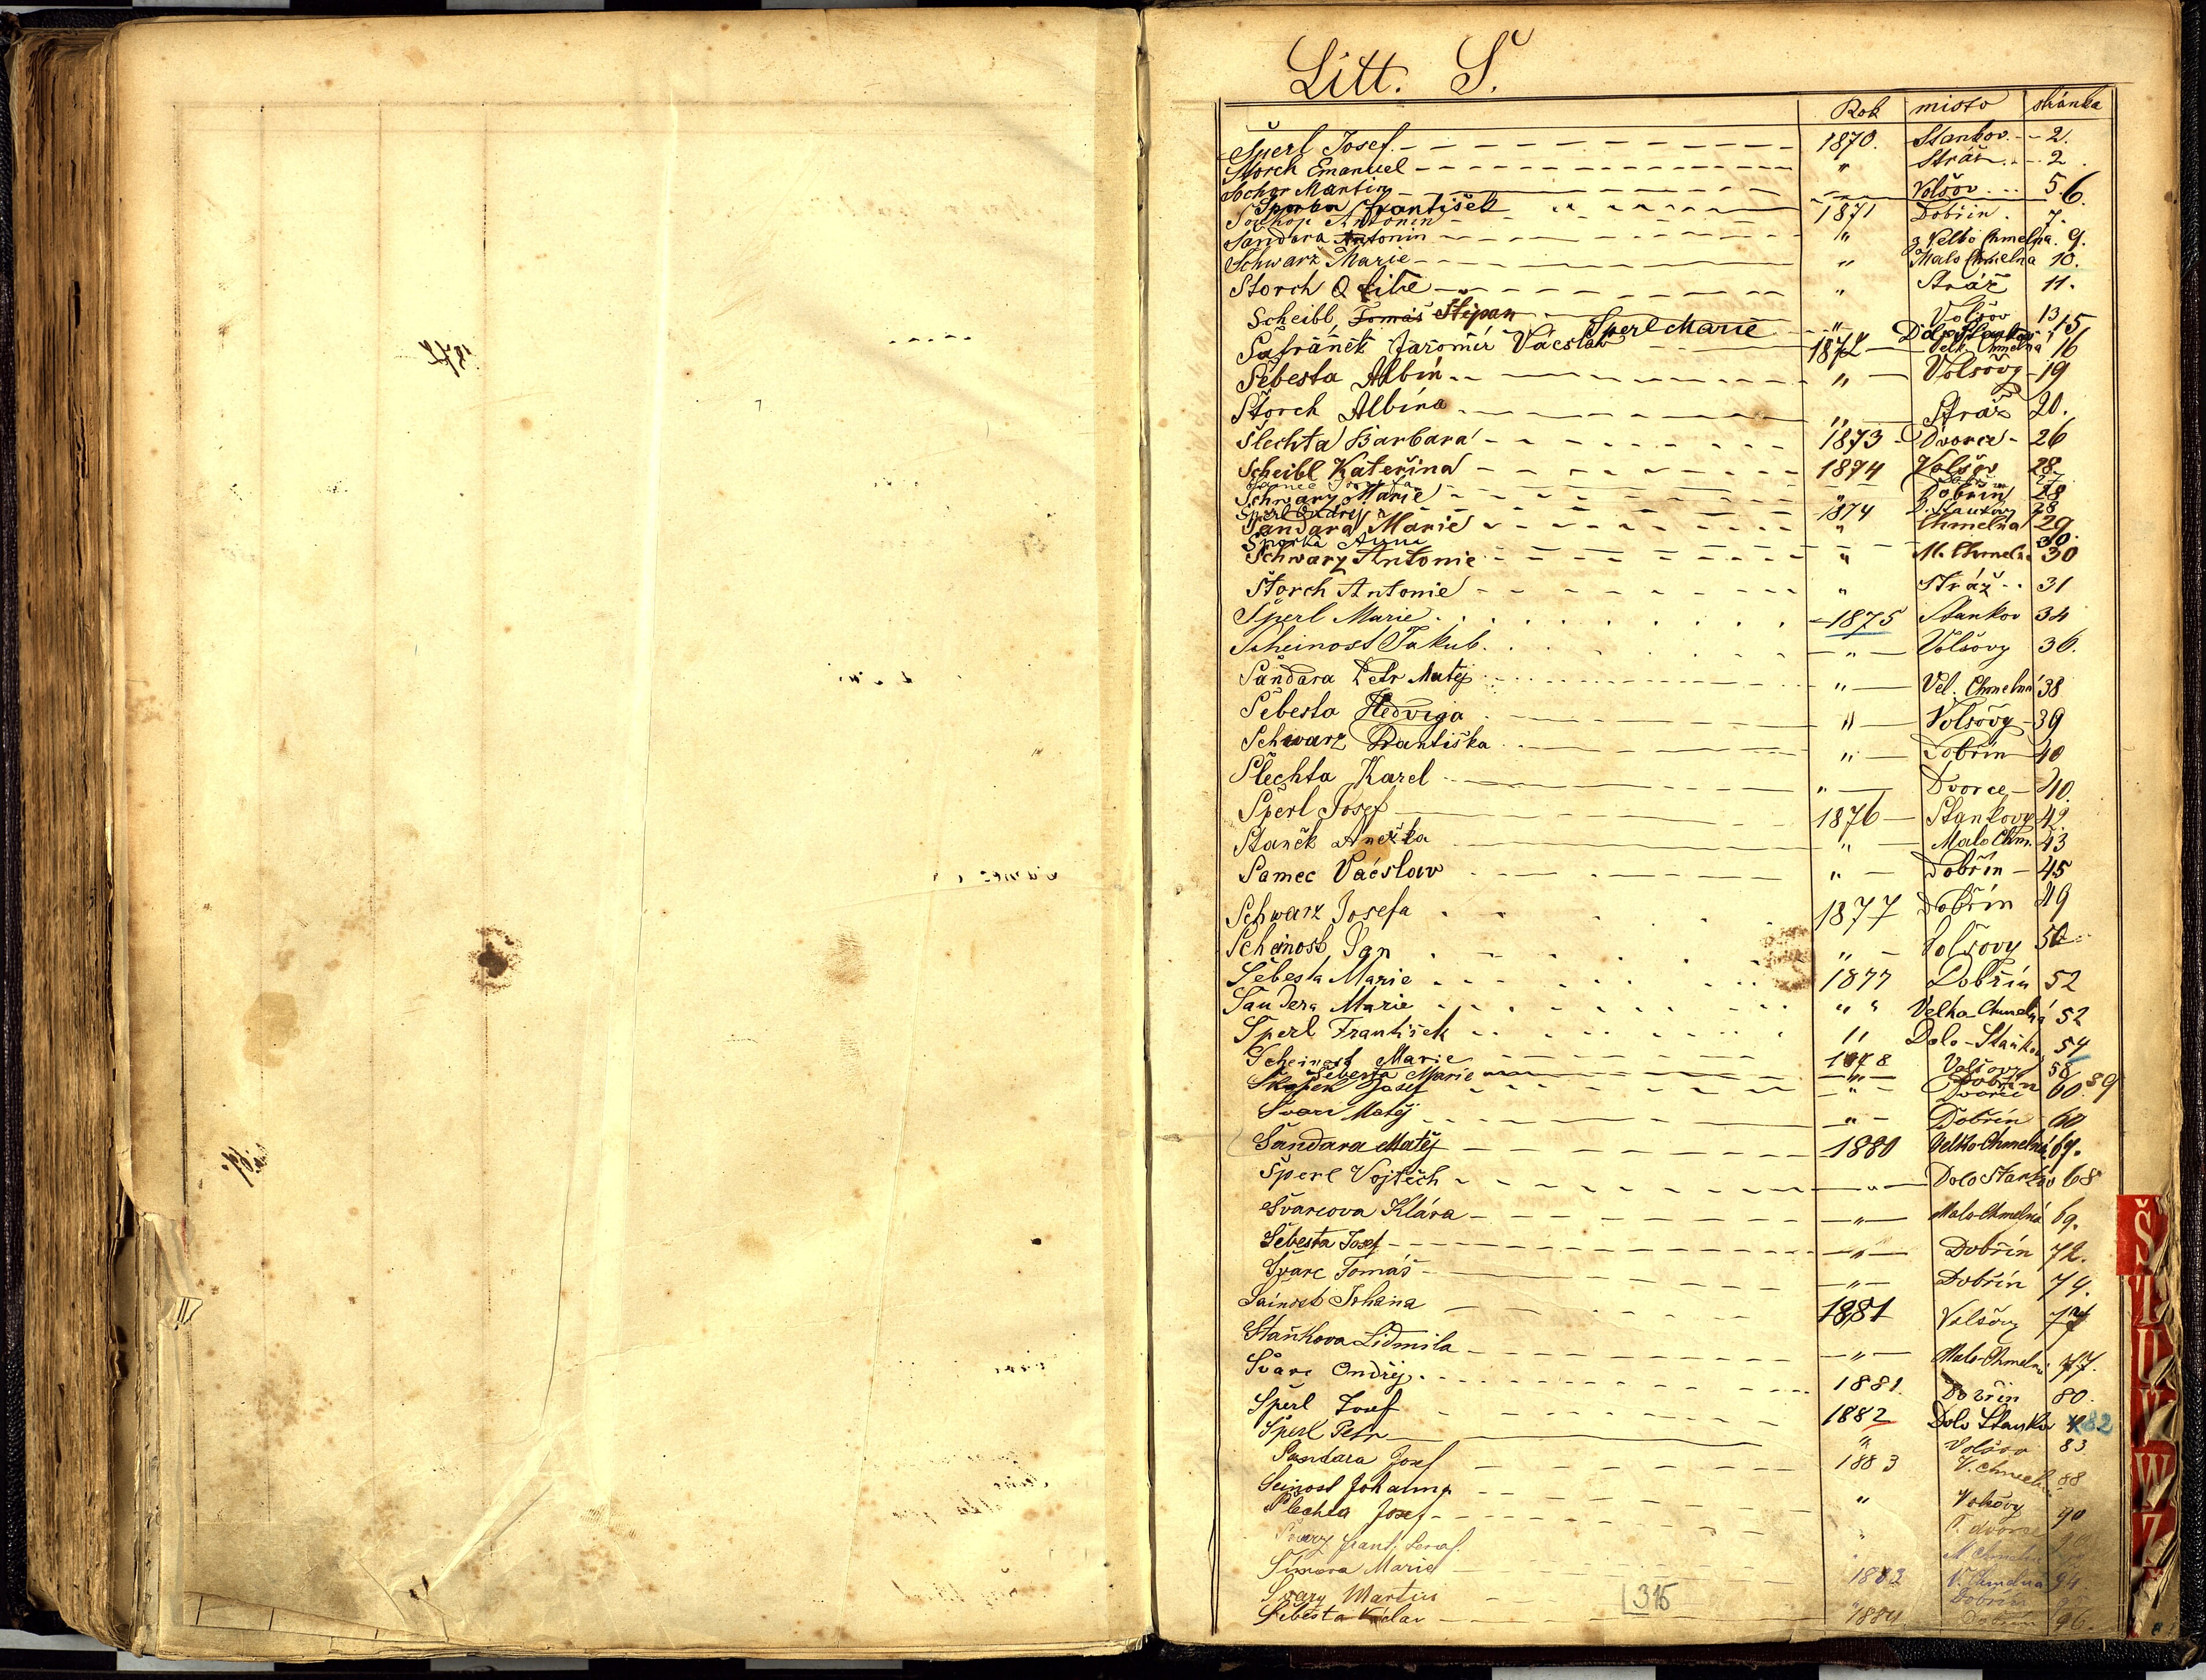 Litt. Š.
Rok místo stránka
Šperl Josef 1870. Stankov 2.
Štorch Emanuel " Stráž 2
Martin Volšov 5.
František 6.
Antonín 1871 Dobřín. 7.
Šandara Antonín " Velko Chmelna. 9.
Schwarz Marie " Malo Chmelna 10.
Štorch " Stráž 11.
Scheibl Tomáš Štěpan " Volšov 13
Šperl Marie 15
Šafránek Jaromír Vácslav 1872 Velk. Chmelná 16
Šebesta Albín " Volšovy 19
Štorch Albína " Stráž 20.
Šlechta Barbara 1873 Dvorce 26
Scheibl Kateřina 1874 Volšov 28
27
Schwarz Marie " Dobřín 28
Šperl 1874 D. Stankov 28
Šandara Marie " Chmelna 29
Anna 30.
Schwarz Antonie " M. Chmelna 30
Štorch Antonie " Stráž 31
Šperl Marie 1875 Stankov 34
Scheinost Jakub. " Volšovy 36.
Šandara Petr Matěj " Vel. Chmelná 38
Šebesta Hedviga " Volšovy 39
Schwarz Františka " Dobřín 40
Šlechta Karel " Dvorce 40.
Šperl Josef 1876 Stankovy 42
Staněk Anežka " Malo Chm. 43
Samec Vácslav " Dobřín 45
Schwarz Josefa 1877 Dobřín 49
Scheinost Jan " Volšovy 50
Šebesta Marie 1877 Dobřín 52
Šandera Marie " " Velka Chmelná 52
Šperl František " Dolo-Staňkov 54
Scheinost Marie 1878 Volšovy 58
Šebesta Marie " Dobřín 89
Josef " Dvorce 60.
Švarc Matěj " Dobřín 60
Šandara Matěj 1880 Velko-Chmelná 67.
Šperl Vojtěch " Dolo Stankov 68
Švarcova Klára " Malo-Chmelná 69.
Šebesta Josef " Dobřín 72.
Švarc Tomáš " Dobřín 74.
Šainost Johana 1881 Volšovy 77
Staňkova Lidmila " Malo-Chmelná 77.
Švarc Ondřej. 1881. Dobřín 80.
Šperl Josef 1882 Dolo Stankov 82
Šperl Petr " Volšov 83
Šandara Josef 1883 V. Chmelna 88
Šeinost Johanna " Volšovy 90
Šlechta Josef " dvorce
Švarz Frant. M. Chmelna
Marie 1883 V. Chmelna 94
Švarz Martin " Dobřín
Šebesta Václav 1884 Dobřín 96.
315
Š
U
V
W
Z